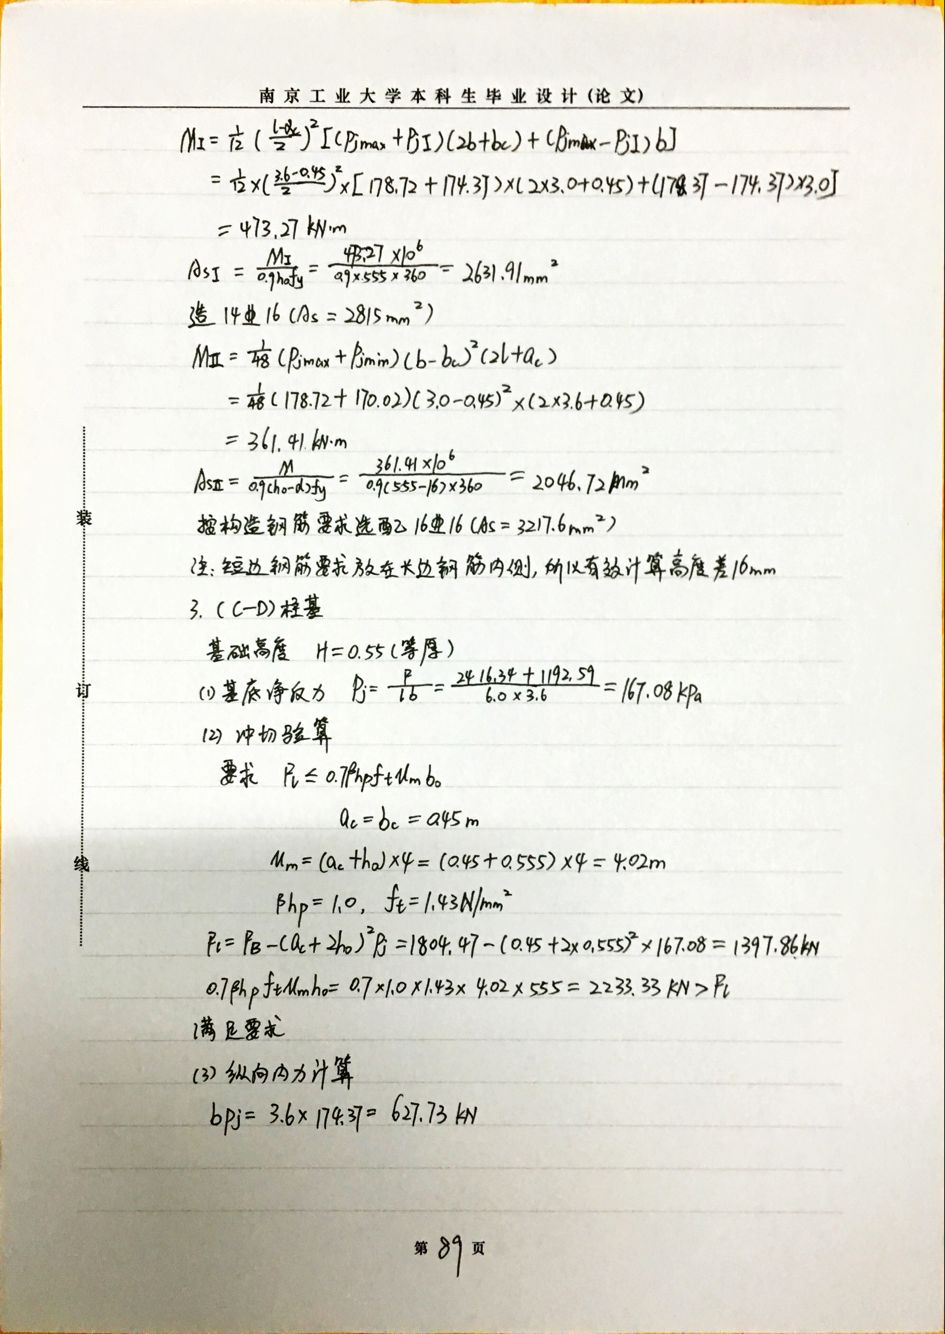 南京工业大学本科生毕业设计(论文)
MⅠ= 1/12 ((l-ac)/2)² [(Pjmax+PjⅠ)(2b+bc)+(Pjmax-PjⅠ)b]
= 1/12×((3.6-0.45)/2)²×[178.72+174.37)×(2×3.0+0.45)+(178.37-174.37)×3.0]
= 473.27 kN·m
AsⅠ = MⅠ/(0.9h₀fy) = (473.27×10⁶)/(0.9×555×360) = 2631.91mm²
选 14业16 (As=2815mm²)
MⅡ= 1/48 (Pjmax+Pjmin)(b-bc)²(2l+ac)
= 1/48 (178.72+170.02)(3.0-0.45)²×(2×3.6+0.45)
= 361.41 kN·m
AsⅡ= M/(0.9(h₀-d)fy) = (361.41×10⁶)/(0.9(555-16)×360) = 2046.72mm²
按构造钢筋要求选配 16业16 (As=3217.6mm²)
注:短边钢筋要求放在长边钢筋内侧,所以有效计算高度差16mm
3. (C-D)柱基
基础高度 H=0.55(等厚)
(1)基底净反力 Pj= F/lb = (2416.34+1192.59)/(6.0×3.6) = 167.08kPa
(2)冲切验算
要求 Pl ≤ 0.7βhpftUmb₀
ac=bc=0.45m
Um=(ac+h₀)×4=(0.45+0.555)×4=4.02m
βhp=1.0, ft=1.43N/mm²
Pl=PB-(ac+2h₀)²Pj=1804.47-(0.45+2×0.555)²×167.08=1397.86kN
0.7βhpftUmh₀=0.7×1.0×1.43×4.02×555=2233.33KN>Pl
满足要求
(3)纵向内力计算
bpj= 3.6×174.37= 627.73 KN
装
订
线
第 89 页